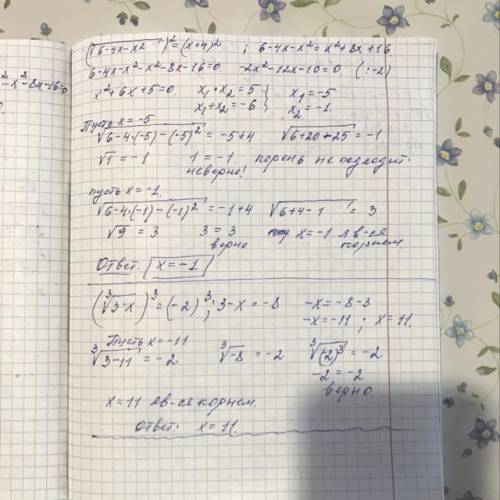 x²-8x-16=0
(√6-4x-x²)²=(x+4)² ; 6-4x-x²=x²+8x+16
6-4x-x²-x²-8x-16=0 -2x²-12x-10=0 (:-2)
x²+6x+5=0 x₁*x₂=5 } x₁=-5
x₁+x₂=-6 } x₂=-1
Пусть x=-5
√6-4·(-5)-(-5)²=-5+4 √6+20+25=-1
√1=-1 1=-1 корень не подходит.
неверно!
пусть x=-1
√6-4·(-1)-(-1)²=-1+4 √6+4-1=3
√9=3 3=3 x=-1 яв-ся
верно корнем
Ответ: x=-1
(∛3-x)³=(-2)³; 3-x=-8 -x=-8-3
-x=-11; x=11.
Пусть x=-11
∛3-11=-2 ∛-8=-2 ∛(-2)³=-2
-2=-2
верно
x=11 яв-ся корнем.
Ответ: x=11.